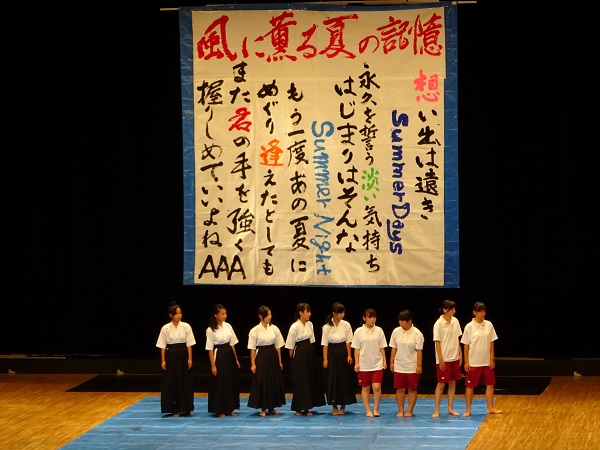 風に薫る夏の記憶
想い出は遠き
Summer Days
永久を誓う淡い気持ち
はじまりはそんな
Summer Night
もう一度あの夏に
めぐり逢えたとしても
また君の手を強く
握りしめていいよね
AAA